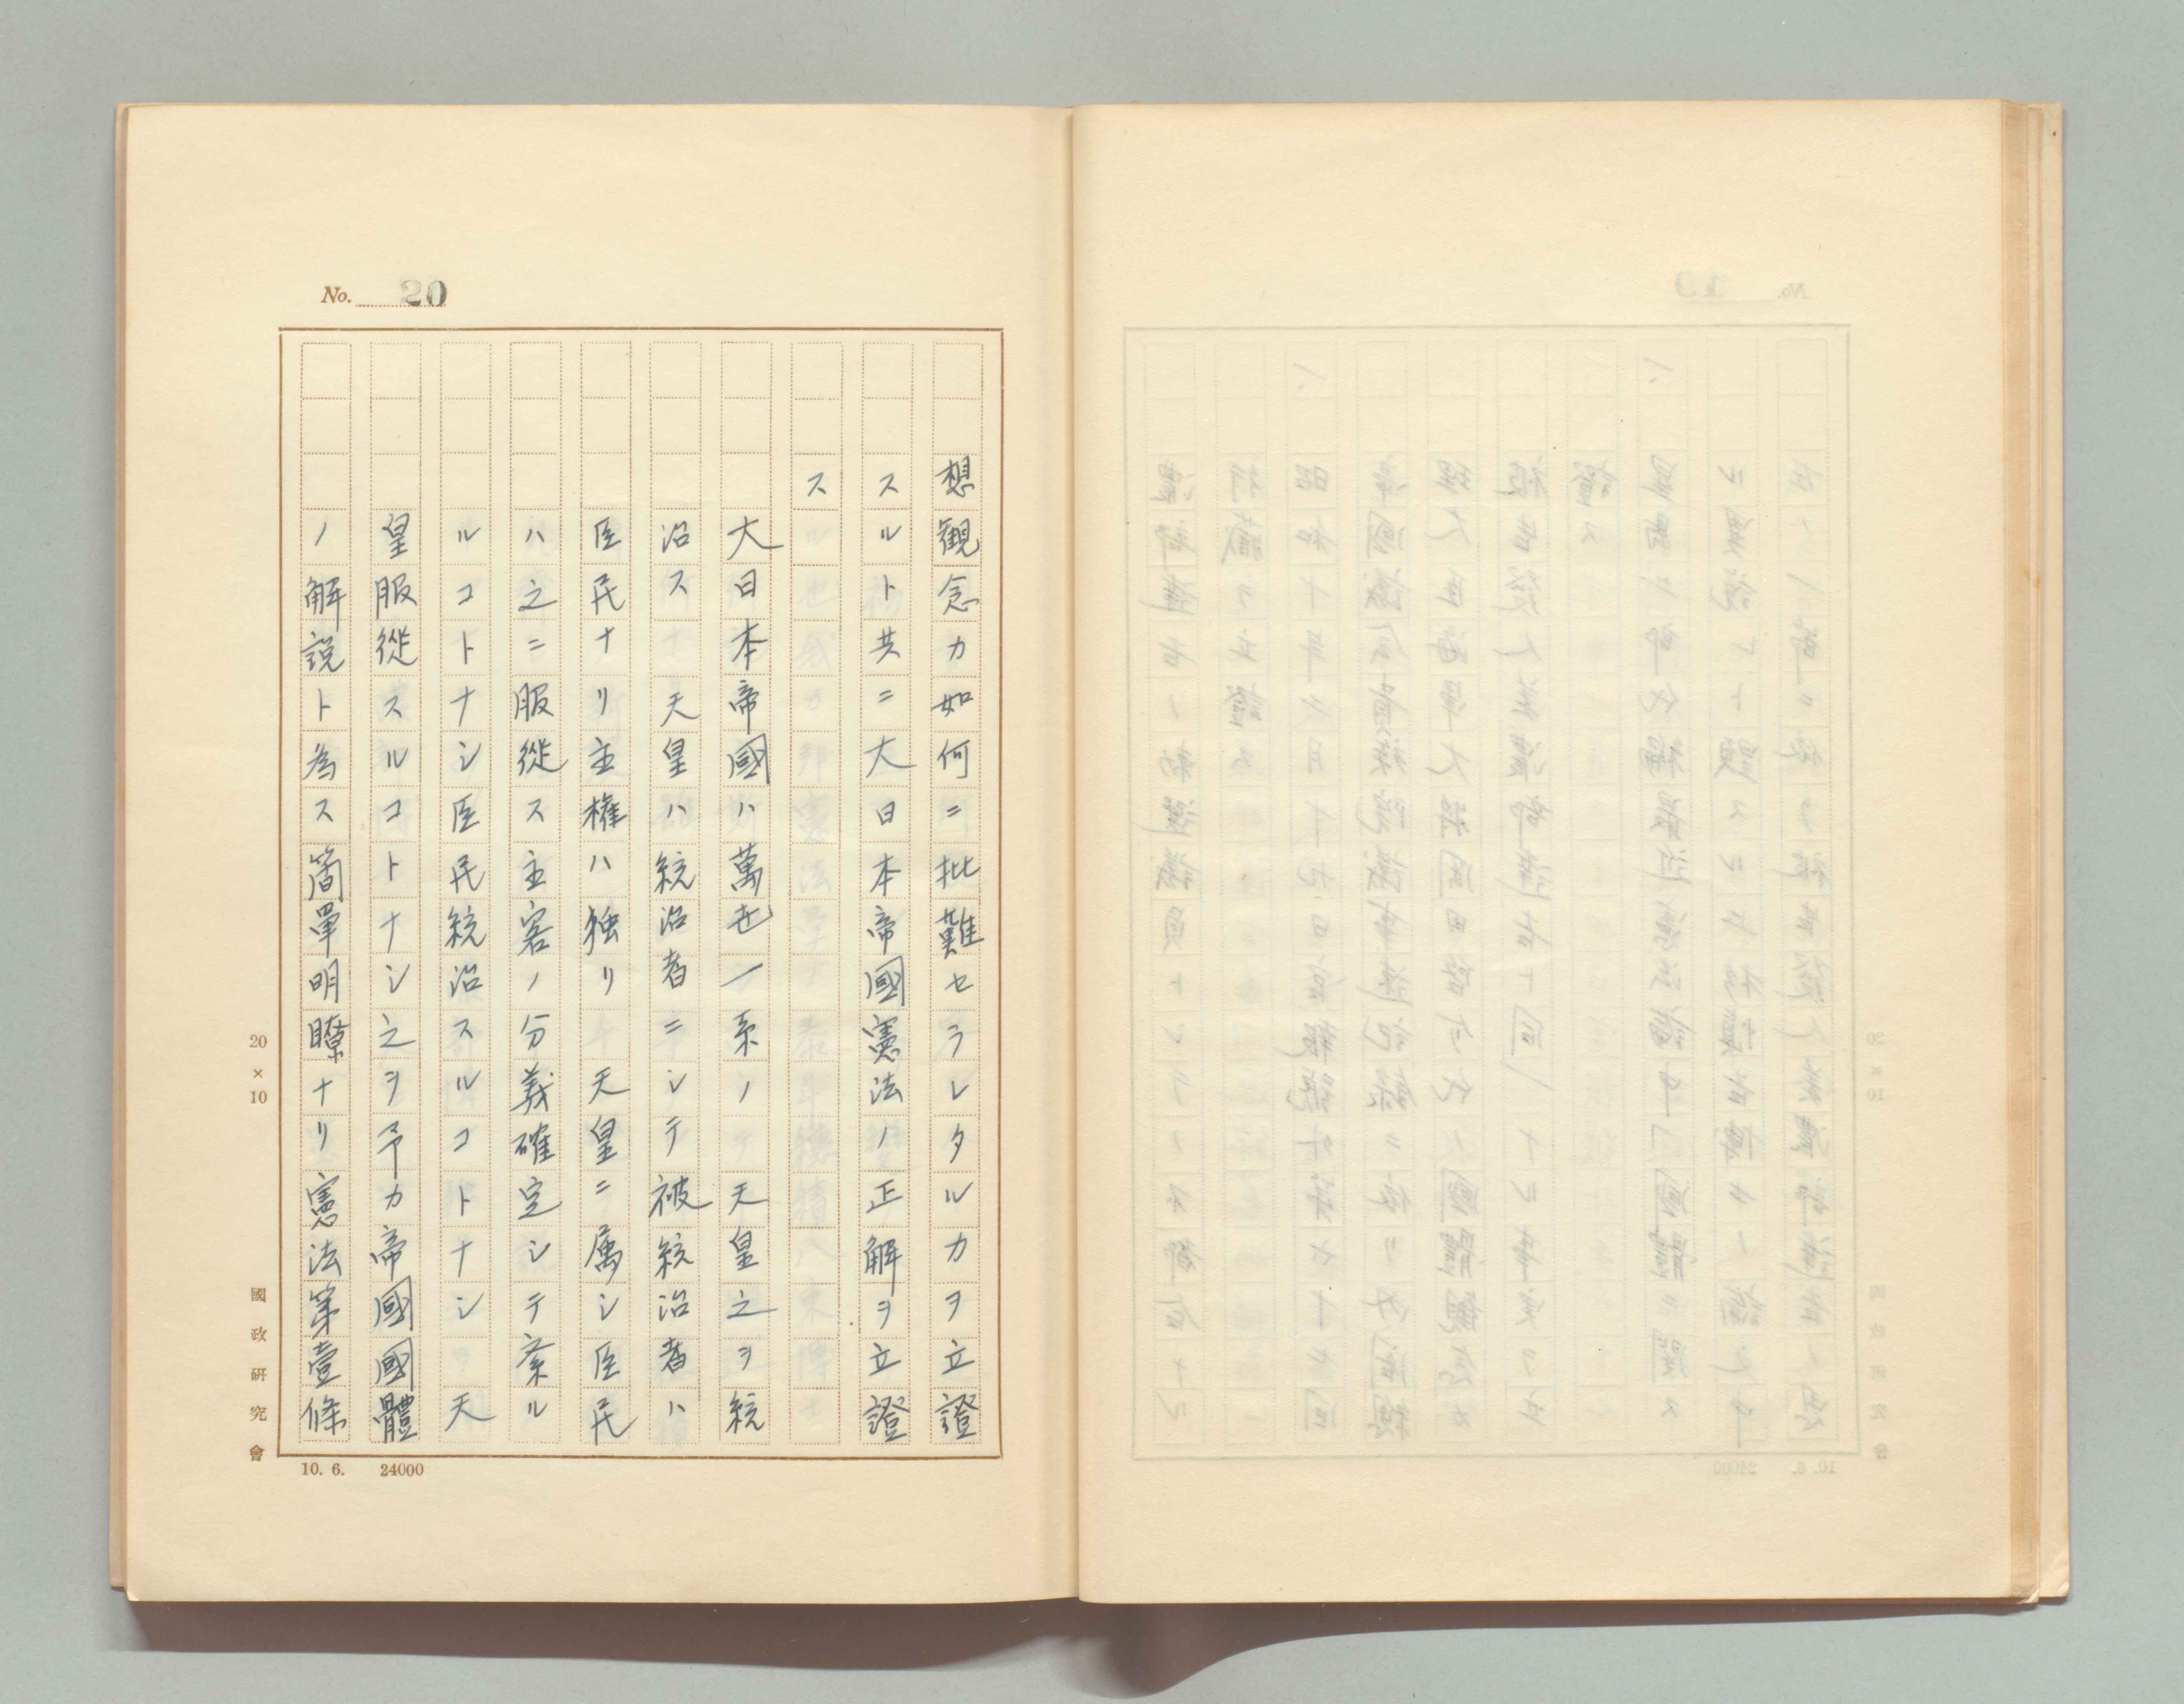 No. 20
想観念カ如何ニ批難セラレタルカヲ立證
スルト共ニ大日本帝國憲法ノ正解ヲ立證
ス
大日本帝國ハ萬世一系ノ天皇之ヲ統
治ス 天皇ハ統治者ニシテ被統治者ハ
臣民ナリ主権ハ独リ 天皇ニ属シ臣民
ハ之ニ服從ス主客ノ分義確定シテ紊ル
ルコトナシ臣民統治スルコトナシ 天
皇服從スルコトナシ之ヲ予カ帝國國體
ノ解説ト為ス簡単明瞭ナリ憲法第壹條
20×10
國政研究會
10. 6. 24000